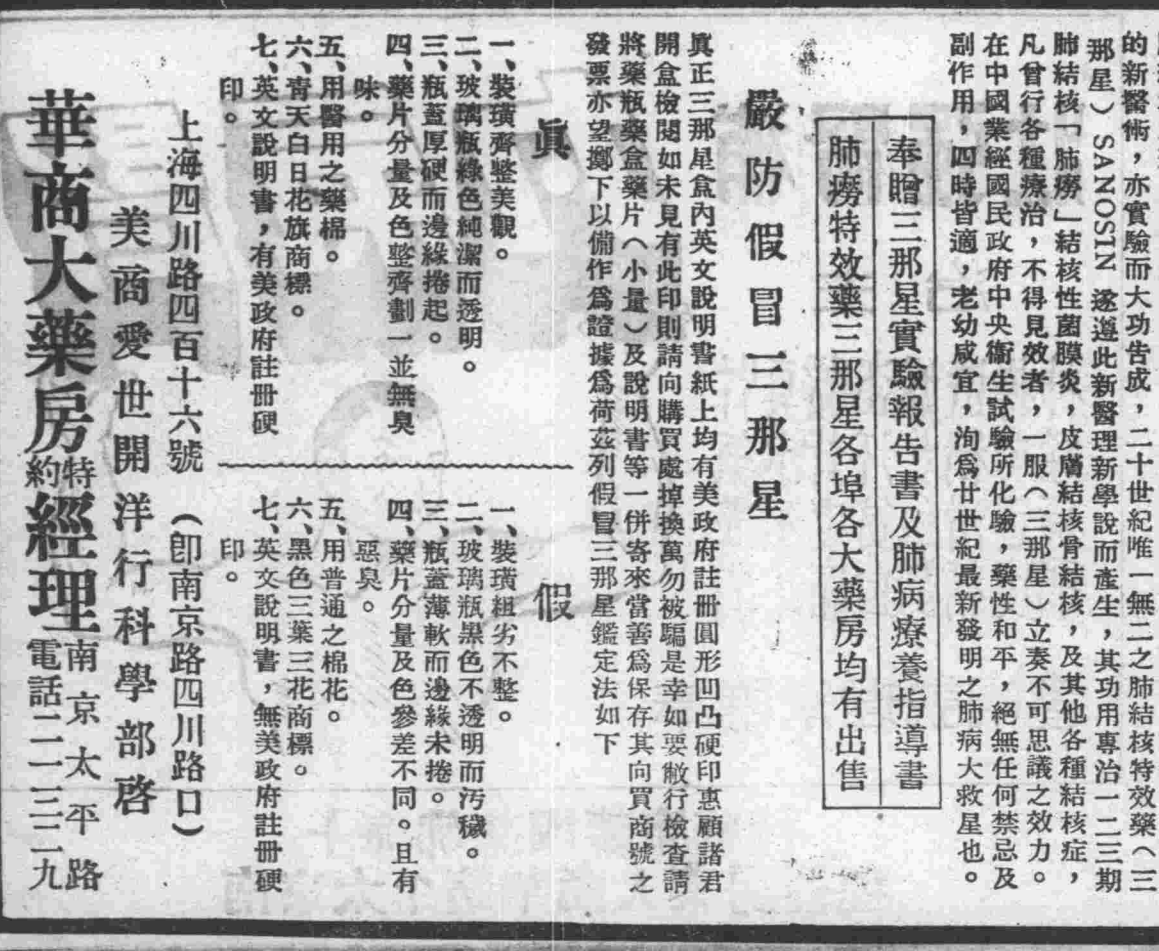 的新醫術，亦實驗而大功告成，二十世紀唯一無二之肺結核特效藥（三
那星）SANOSIN 遂遵此新醫理新學說而產生，其功用專治一二三期
肺結核「肺癆」結核性菌膜炎，皮膚結核骨結核，及其他各種結核症，
凡曾行各種療治，不得見效者，一服（三那星）立奏不可思議之效力。
在中國業經國民政府中央衞生試驗所化驗，藥性和平，絕無任何禁忌及
副作用，四時皆適，老幼咸宜，洵爲廿世紀最新發明之肺病大救星也。
奉贈三那星實驗報告書及肺病療養指導書
肺癆特效藥三那星各埠各大藥房均有出售
嚴防假冒三那星
眞正三那星盒內英文說明書紙上均有美政府註册圓形凹凸硬印惠顧諸君
開盒檢閱如未見有此印則請向購買處掉換萬勿被騙是幸如要敝行檢查請
將藥瓶藥盒藥片（小量）及說明書等一併寄來當善爲保存其向買商號之
發票亦望擲下以備作爲證據爲荷茲列假冒三那星鑑定法如下
眞
一、裝璜齊整美觀。
二、玻璃瓶綠色純潔而透明。
三、瓶蓋厚硬而邊緣捲起。
四、藥片分量及色整齊劃一並無臭
味。
五、用醫用之藥棉。
六、靑天白日花旗商標。
七、英文說明書，有美政府註册硬
印。
假
一、裝璜粗劣不整。
二、玻璃瓶黑色不透明而汚穢。
三、瓶蓋薄軟而邊緣未捲。
四、藥片分量及色參差不同。且有
惡臭。
五、用普通之棉花。
六、黑色三葉三花商標。
七、英文說明書，無美政府註册硬
印。
上海四川路四百十六號（卽南京路四川路口）
美商愛世開洋行科學部啓
華商大藥房特約經理南京太平路電話二一三二九